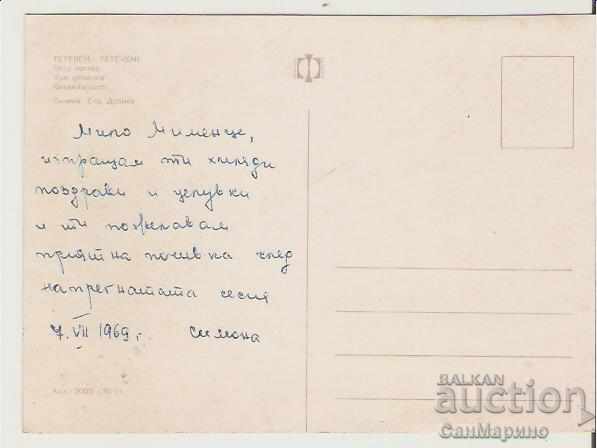 ТЕТЕВЕН — TETEVENE
Мило Мименце,
изпращам ти хиляди
поздрави и целувки
и ти пожелавам
приятна почивка след
напрегнатата сесия
7. VII 1969 г. Симона
BALKAN
auction
СанМарино